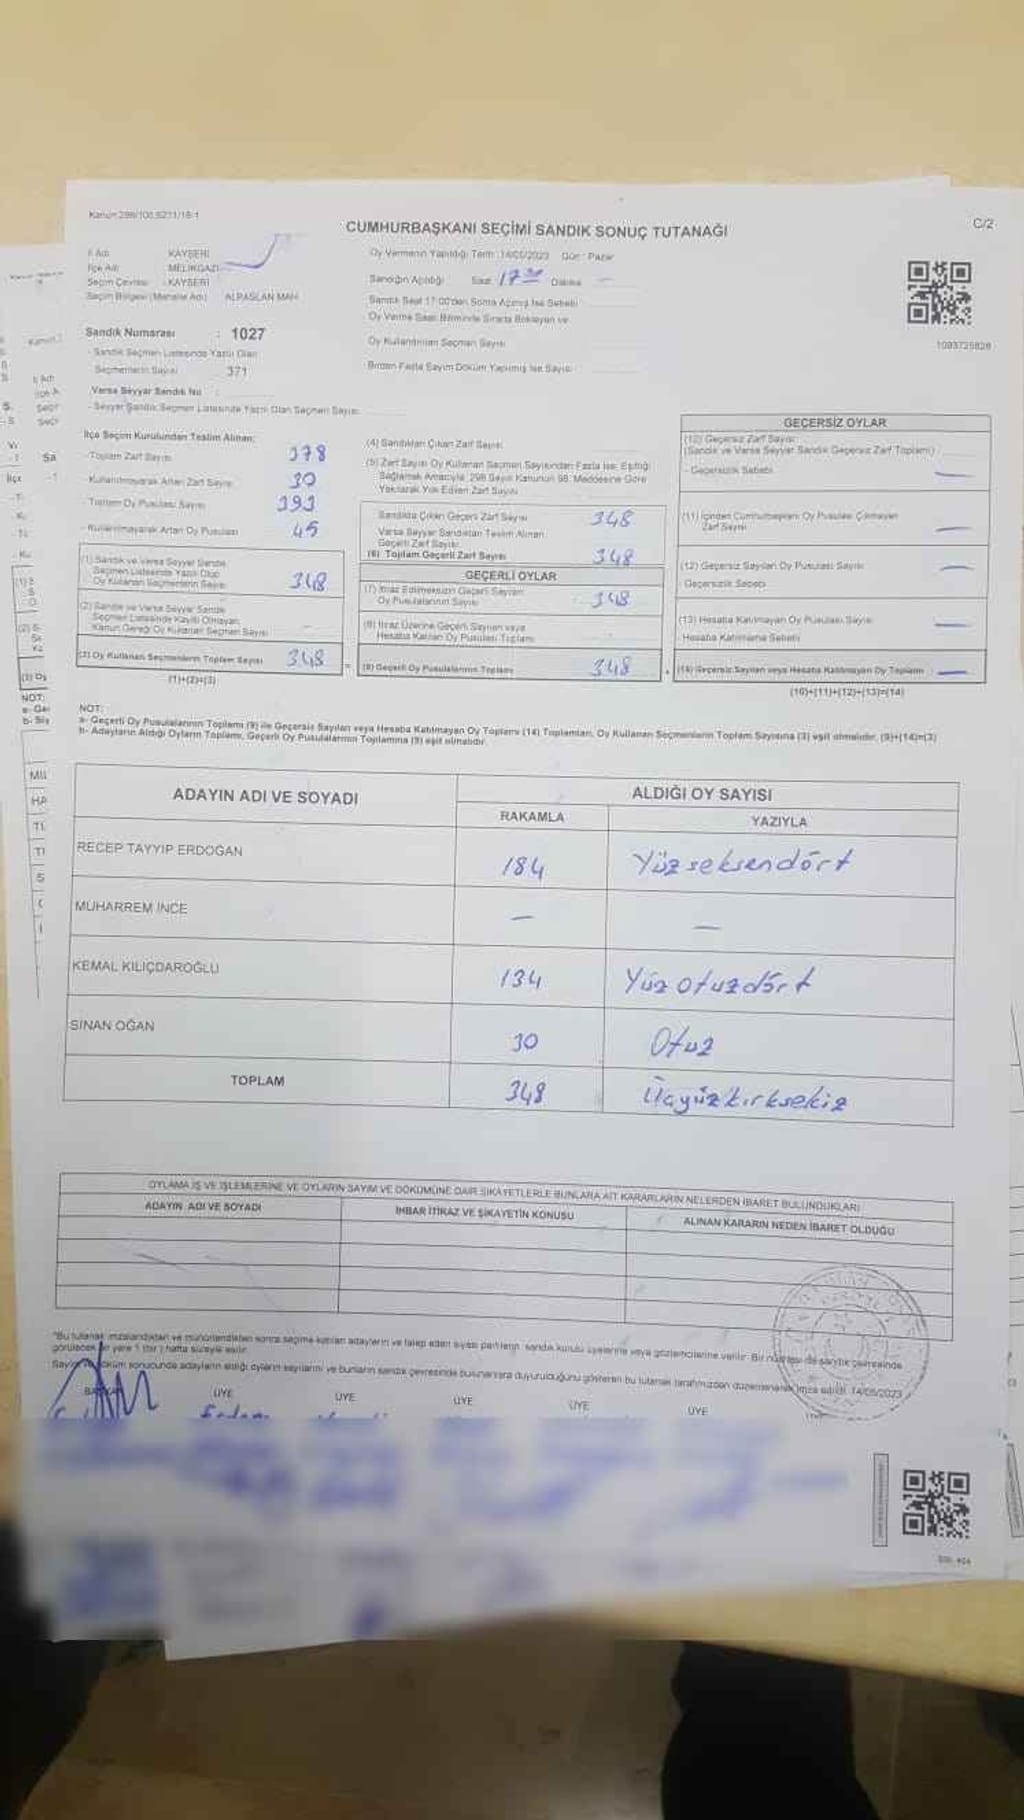 Kanun:298/105,6271/18-1
C/2
CUMHURBAŞKANI SEÇİMİ SANDIK SONUÇ TUTANAĞI
İl Adı : KAYSERİ
İlçe Adı : MELİKGAZİ
Seçim Çevresi : KAYSERİ
Seçim Bölgesi (Mahalle Adı) : ALPASLAN MAH.
Oy Vermenin Yapıldığı Tarih : 14/05/2023 Gün : Pazar
Sandığın Açıldığı Saat Dakika
Sandık Saat 17:00'den Sonra Açılmış İse Sebebi
Oy Verme Saati Bitiminde Sırada Bekleyen ve
Oy Kullandırılan Seçmen Sayısı
Birden Fazla Sayım Döküm Yapılmış İse Sayısı
1093725828
Sandık Numarası : 1027
- Sandık Seçmen Listesinde Yazılı Olan
Seçmenlerin Sayısı 371
Varsa Seyyar Sandık No :
- Seyyar Sandık Seçmen Listesinde Yazılı Olan Seçmen Sayısı:
İlçe Seçim Kurulundan Teslim Alınan;
- Toplam Zarf Sayısı 378
- Kullanılmayarak Artan Zarf Sayısı 30
- Toplam Oy Pusulası Sayısı 393
- Kullanılmayarak Artan Oy Pusulası 45
(1) Sandık ve Varsa Seyyar Sandık
Seçmen Listesinde Yazılı Olup
Oy Kullanan Seçmenlerin Sayısı 348
(2) Sandık ve Varsa Seyyar Sandık
Seçmen Listesinde Kayıtlı Olmayan,
Kanun Gereği Oy Kullanan Seçmen Sayısı
(3) Oy Kullanan Seçmenlerin Toplam Sayısı 348
(1)+(2)=(3)
(4) Sandıktan Çıkan Zarf Sayısı
(5) Zarf Sayısı Oy Kullanan Seçmen Sayısından Fazla İse, Eşitliği
Sağlamak Amacıyla, 298 Sayılı Kanunun 98. Maddesine Göre
Yakılarak Yok Edilen Zarf Sayısı
Sandıkta Çıkan Geçerli Zarf Sayısı 348
Varsa Seyyar Sandıktan Teslim Alınan
Geçerli Zarf Sayısı
(6) Toplam Geçerli Zarf Sayısı 348
GEÇERLİ OYLAR
(7) İtiraz Edilmeksizin Geçerli Sayılan
Oy Pusulalarının Sayısı 348
(8) İtiraz Üzerine Geçerli Sayılan veya
Hesaba Katılan Oy Pusulası Toplamı
(9) Geçerli Oy Pusulalarının Toplamı 348
GEÇERSİZ OYLAR
Geçersiz Zarf Sayısı
(Sandık ve Varsa Seyyar Sandık Geçersiz Zarf Toplamı)
- Geçersizlik Sebebi —
(11) İçinden Cumhurbaşkanı Oy Pusulası Çıkmayan
Zarf Sayısı —
(12) Geçersiz Sayılan Oy Pusulası Sayısı —
Geçersizlik Sebebi
(13) Hesaba Katılmayan Oy Pusulası Sayısı —
- Hesaba Katılmama Sebebi
(14) Geçersiz Sayılan veya Hesaba Katılmayan Oy Toplamı —
(10)+(11)+(12)+(13)=(14)
NOT:
a- Geçerli Oy Pusulalarının Toplamı (9) ile Geçersiz Sayılan veya Hesaba Katılmayan Oy Toplamı (14) Toplamları, Oy Kullanan Seçmenlerin Toplam Sayısına (3) eşit olmalıdır. (9)+(14)=(3)
b- Adayların Aldığı Oyların Toplamı, Geçerli Oy Pusulalarının Toplamına (9) eşit olmalıdır.
ADAYIN ADI VE SOYADI
ALDIĞI OY SAYISI
RAKAMLA YAZIYLA
RECEP TAYYİP ERDOĞAN 184 Yüzseksendört
MUHARREM İNCE — —
KEMAL KILIÇDAROĞLU 134 Yüzotuzdört
SİNAN OĞAN 30 Otuz
TOPLAM 348 Üçyüzkırksekiz
OYLAMA İŞ VE İŞLEMLERİNE VE OYLARIN SAYIM VE DÖKÜMÜNE DAİR ŞİKAYETLERLE BUNLARA AİT KARARLARIN NELERDEN İBARET BULUNDUKLARI
ADAYIN ADI VE SOYADI İHBAR İTİRAZ VE ŞİKAYETİN KONUSU ALINAN KARARIN NEDEN İBARET OLDUĞU
*Bu tutanak imzalandıktan ve mühürlendikten sonra seçime katılan adayların ve talep eden siyasi partilerin sandık kurulu üyelerine veya gözlemcilerine verilir. Bir nüshası da sandık çevresinde
görülecek bir yere 1 (bir) hafta süreyle asılır.
döküm sonucunda adayların aldığı oyların sayılarını ve bunların sandık çevresinde bulunanlara duyurulduğunu gösteren bu tutanak tarafımızdan düzenlenerek imza edildi. 14/05/2023
ÜYE ÜYE ÜYE ÜYE ÜYE